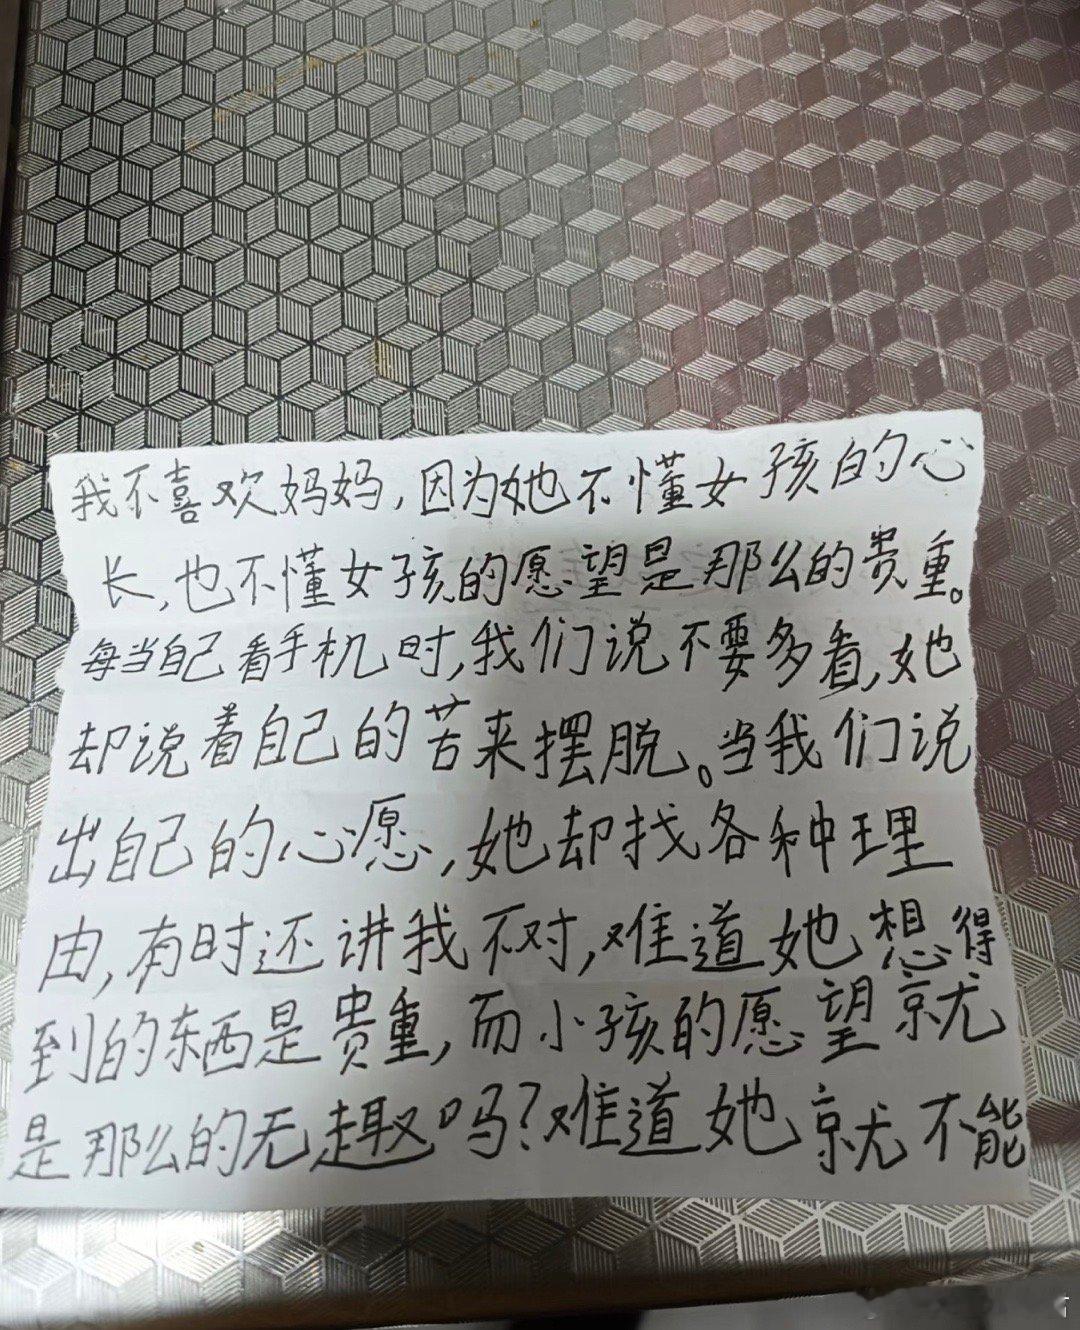 我不喜欢妈妈,因为她不懂女孩的心
长,也不懂女孩的愿望是那么的贵重。
每当自己看手机时,我们说不要多看,她
却说着自己的苦来摆脱。当我们说
出自己的心愿,她却找各种理
由,有时还讲我不对,难道她想得
到的东西是贵重,而小孩的愿望就
是那么的无趣吗?难道她就不能